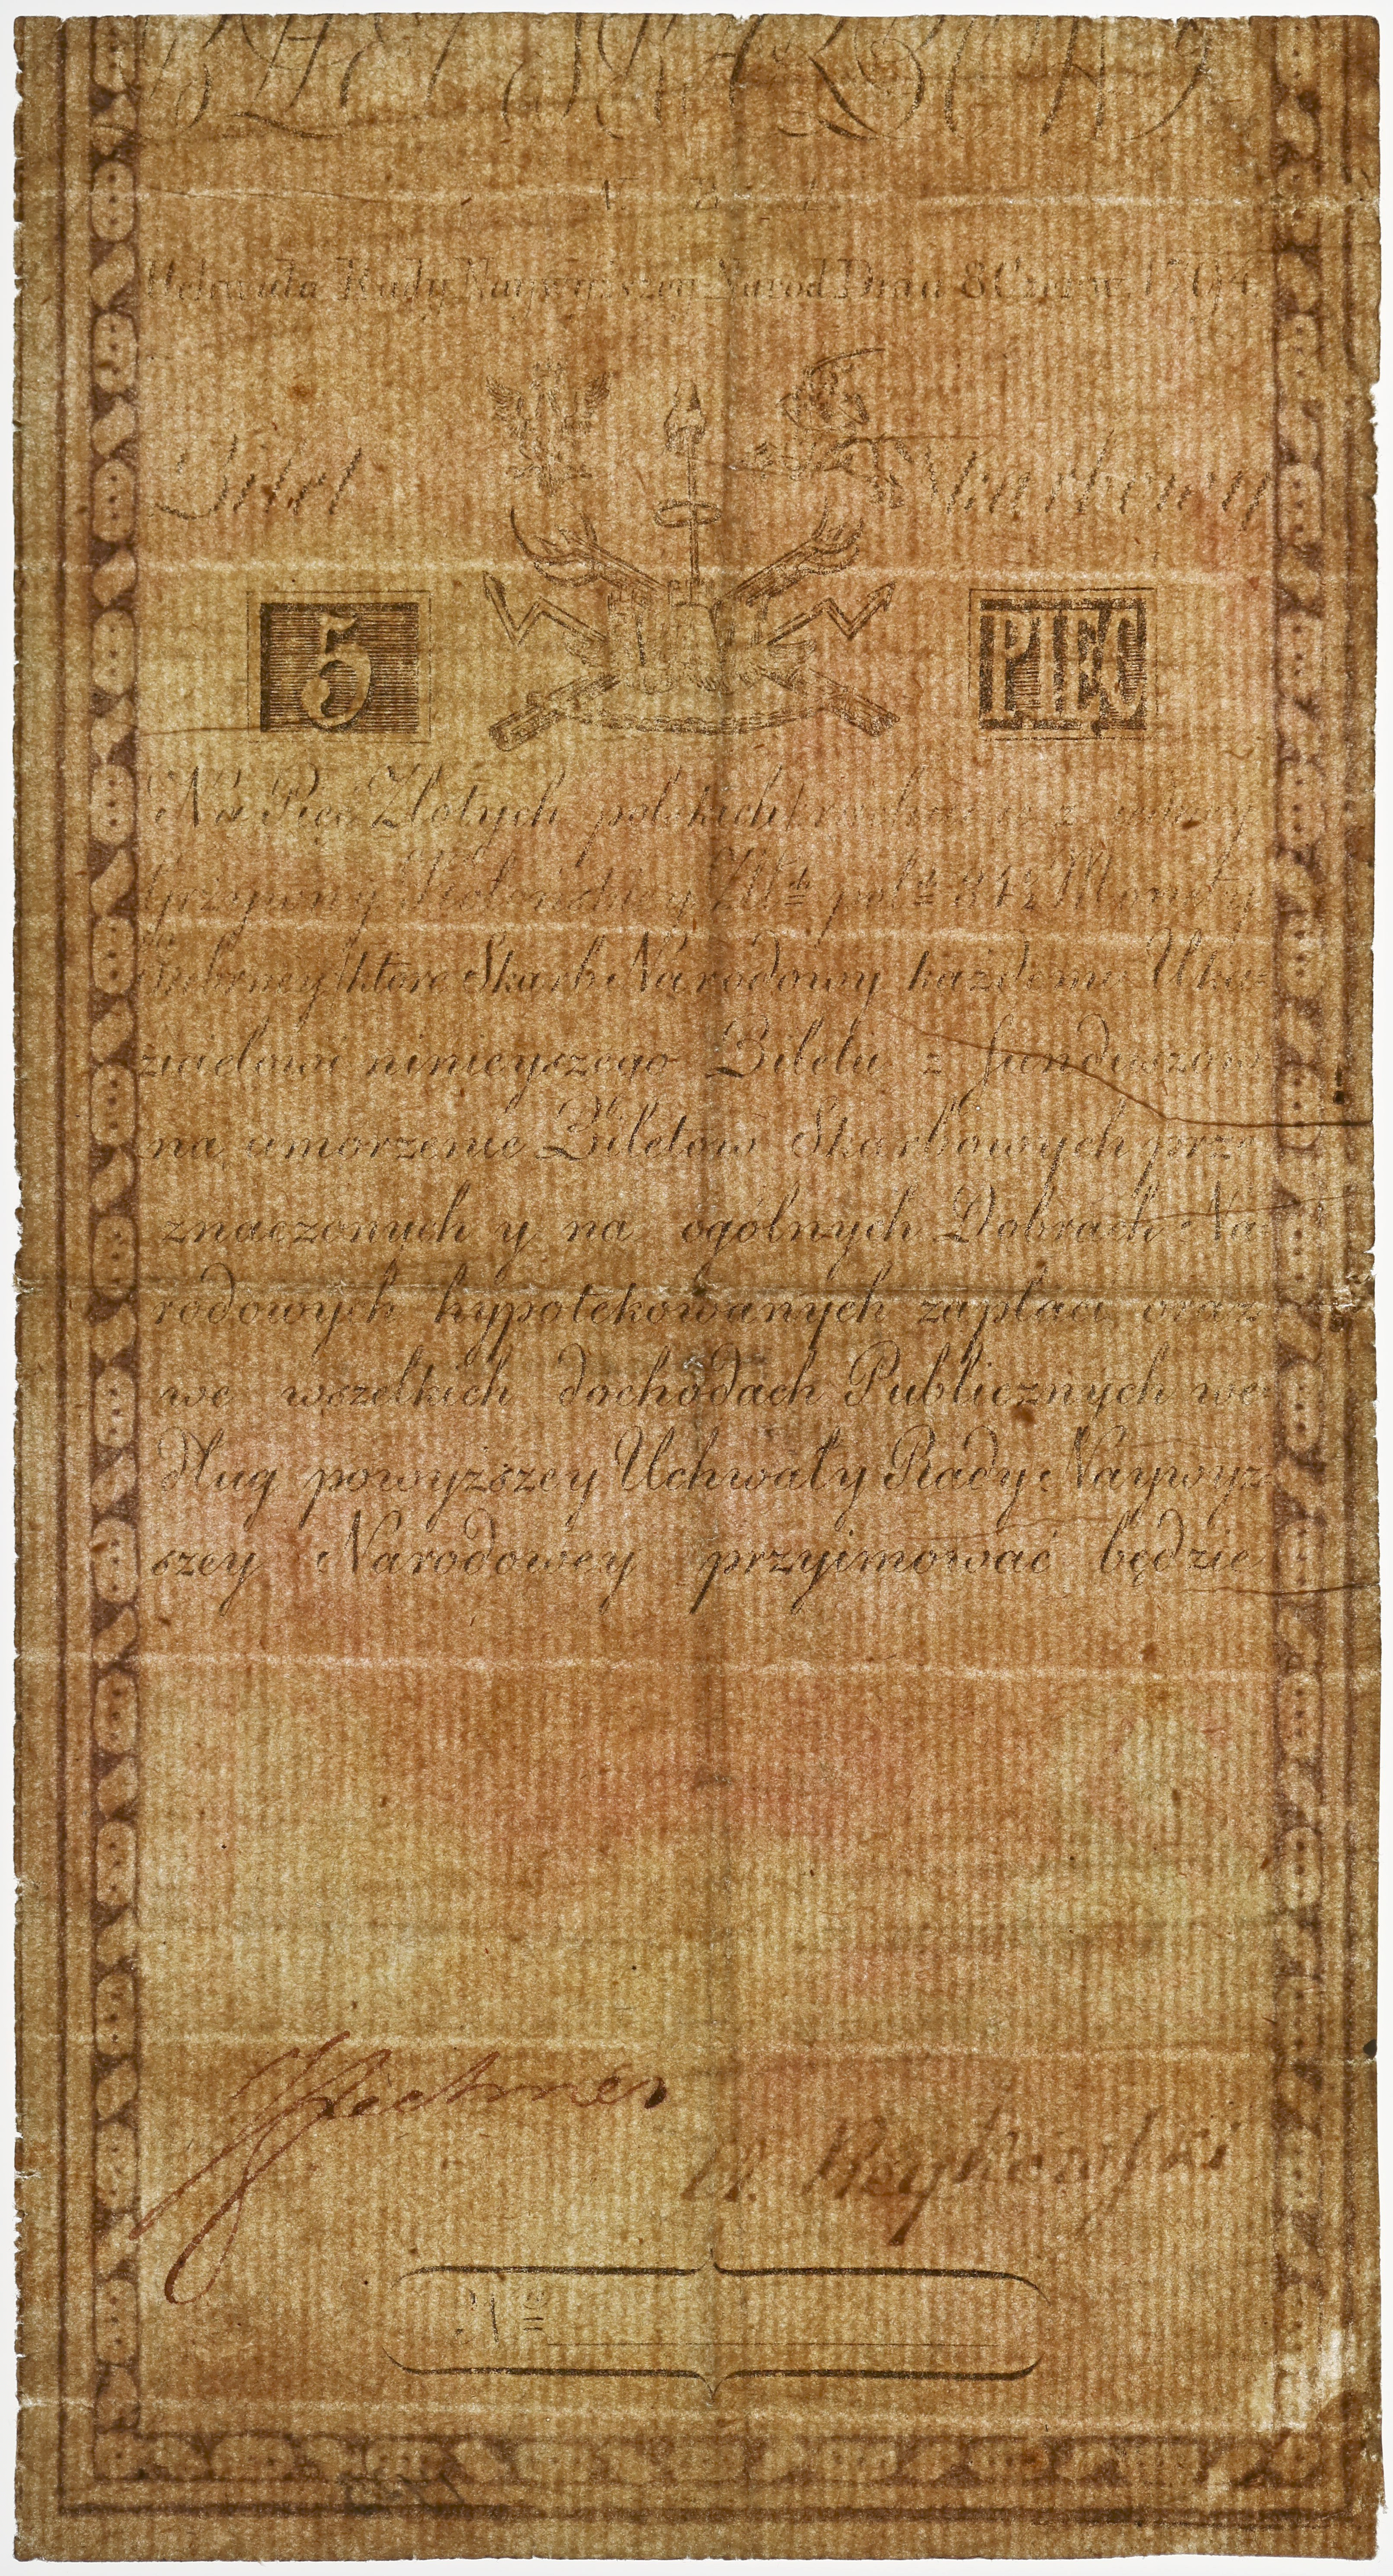 BILET SKARBOWY
N. B. 1.
Uchwała Rady Naywyższey Narod: Dnia 8 Czerw: 1794.
Bilet Skarbowy
5 PIĘĆ
Na Pięć Złotych polskich rachuiąc z
grzywny Kolońskiey Złtch polch 84½ Monety
Srebrney które Skarb Narodowy każdemu Uka=
zicielowi ninieyszego Biletu z funduszow
na umorzenie Biletow Skarbowych prze
znaczonych y na ogólnych Dobrach Na
rodowych hypotekowanych zapłaci, oraz
we wszelkich dochodach Publicznych we
dług powyższey Uchwały Rady Naywyż=
szey Narodowey przyimować będzie
J Fechner
M. Reykowski
No